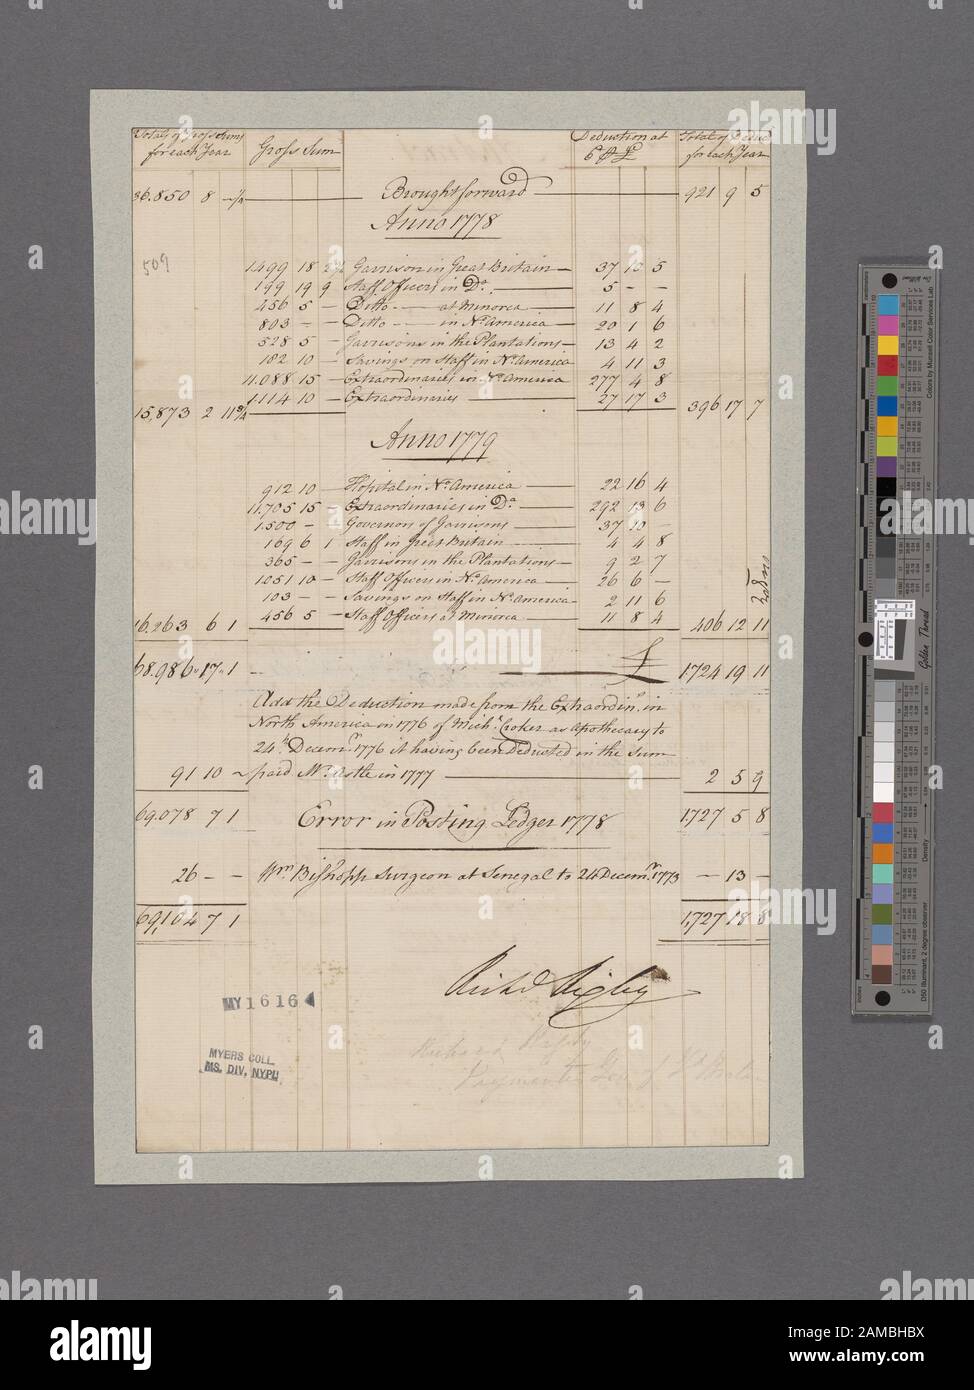 Totals of Gross Sums for each Year | Gross Sum | Deduction at 6 ⅌ £ | Total of Deduct for each Year
36.850 8 - ¼ Brought forward 921 9 5
Anno 1778
509
1499 18 2¾ Garrison in Great Britain 37 10 5
199 19 9 Staff Officers in Do. 5 - -
456 5 - Ditto at Minorca 11 8 4
803 - - Ditto in No. America 20 1 6
528 5 - Garrisons in the Plantations 13 4 2
182 10 - Savings on Staff in No. America 4 11 3
11.088 15 - Extraordinaries in No. America 277 4 8
1.114 10 - Extraordinaries 27 17 3
15,873 2 11¾ 396 17 7
Anno 1779
912 10 - Hospital in No. America 22 16 4
11.705 15 - Extraordinaries in Do. 292 13 6
1.500 - - Governors of Garrisons 37 10 -
169 6 1 Staff in Great Britain 4 4 8
365 - - Garrisons in the Plantations 9 2 7
1051 10 - Staff Officers in No. America 26 6 -
103 - - Savings on Staff in No. America 2 11 6
456 5 - Staff Officers at Minorca 11 8 4
16.263 6 1 406 12 11
68.986 17 1 £ 1.724 19 11
Add the Deduction made from the Extraordin.s in
North America in 1776 of Mich.l Croker as Apothecary to
24th Decemr. 1776 it having been Deducted in the Sum
91 10 - paid Mr. Astle in 1777 2 5 9
69.078 7 1 Error in Posting Ledger 1778 1.727 5 8
26 - - Wm. Bishopp Surgeon at Senegal to 24 Decemr. 1773 - 13 -
69,104 7 1 1,727 18 8
Richd Rigby
MY 1616
Richard Rigby
Paymaster Gen
MYERS COLL.
MS. DIV. NYPL
Golden Thread
Colors by Munsell Color Services Lab
Density
D50 Illuminant, 2 degree observer
alamy
Image ID: 2AMBHBX
www.alamy.com